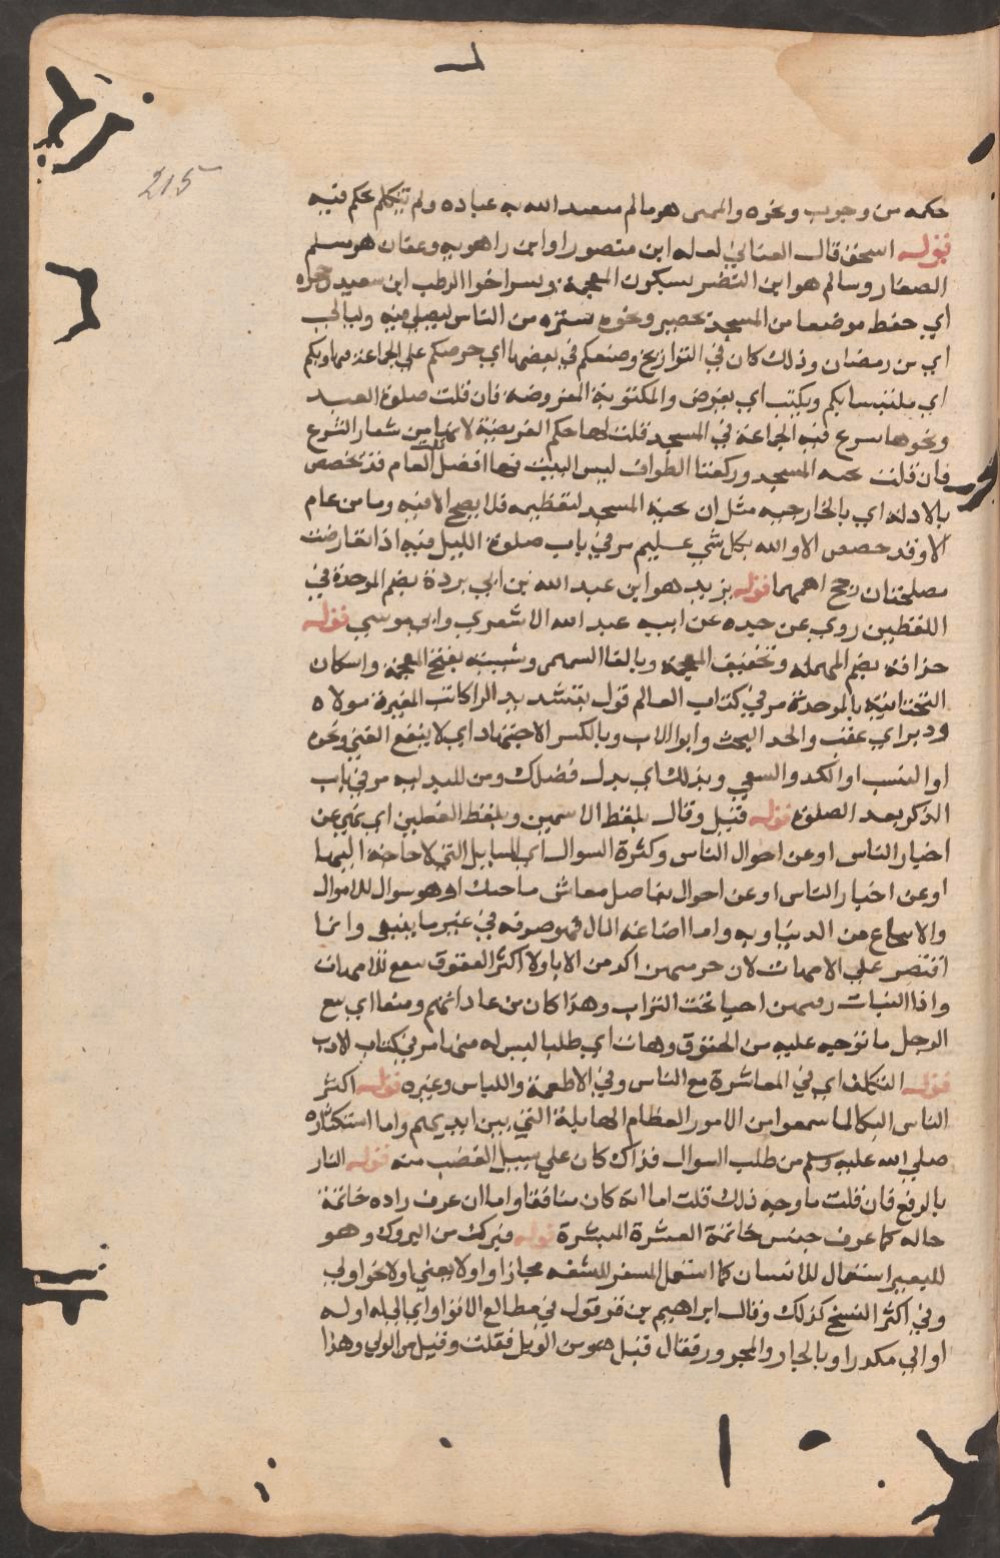 215
حكمه من وجوب ونحوه والمعنى هو ما لم يتعبد الله به عباده ولم يتكلم بحكم فيه
قوله اسحق قال الغساني لعله ابن منصور او ابن راهويه وعفان هو مسلم
الصفار وسالم هو ابن النضر بسكون المعجمة وبسر اخو الرطب ابن سعيد حجره
اي حفظ موضعا من المسجد بحصير ونحوه يستره من الناس ليصلي فيه وليالي
اي من رمضان وذلك كان في التواريخ وصنعكم في بعضها اي حرصكم على الجماعة فيها وبكم
اي ملتبسا بكم ويكتب اي يفرض والمكتوبة المفروضة فان قلت صلوة العيد
ونحوها شرع فيه الجماعة في المسجد قلت لها حكم الفريضة لانها من شعار الشرع
فان قلت تحية المسجد وركعتا الطواف ليس البيت فيها افضل قلت العام قد يخصص
بالادلة اي بالخارجيه مثل ان تحية المسجد لتعظيمه فلا يصح الا فيه وما من عام
الا وقد خصص الا والله بكل شي عليم مر في باب صلوة الليل فيه اذا تعارضت
مصلحتان رجح اهمهما قوله بريد هو ابن عبد الله بن ابي بردة بضم الموحدة في
اللفظين روي عن جده عن ابيه عبد الله الاشعري وابي موسي قوله
حذافة بضم المهملة وتخفيف المعجمة وبالفا السهمي وشيبة بفتح المعجمة واسكان
التحتانية بالموحدة مر في كتاب العالم قول بتشديد الرا كاتب المغيرة مولاه
ودبر اي عقب والجد البخت وابو الاب وبالكسر الاجتهاد اي لا ينفع الغني ونحوه
او النسب او الكد والسعي وبذلك اي بدل فضلك ومن للبدليه مر في باب
الذكر بعد الصلوة قوله قيل وقال بلفظ الاسمين وبلفظ الفعلين اي نهي عن
اخبار الناس او عن احوال الناس وكثرة السوال اي المسايل التي لا حاجة اليها
او عن اخبار الناس او عن احوال تفاصيل معاش صاحبك او هو سوال للاموال
والاشجاع من الدنياويه واما اضاعة المال فهو صرفه في غير ما ينبغي وانما
اقتصر على الامهات لان حرمتهن اكد من الابا ولا اكثر العقوق يقع للامهات
واذا البنات دفنهن احيا تحت التراب وهذا كان من عاداتهم ومنعا اي منع
الرجل ما توجه عليه من الحقوق وهات اي طلبا ليس له منها مر في كتاب الادب
قوله التكلف اي في المعاشرة مع الناس وفي الاطعمة واللباس وغيره قوله اكثر
الناس البكا لما سمعوا من الامور العظام الهايلة التي بين ايديهم واما استكثاره
صلي الله عليه وسلم من طلب السوال فذاك كان علي سبيل الغضب منه قوله النار
بالرفع فان قلت ما وجه ذلك قلت اما انه كان منافقا واما ان عرف راده خاتمة
حاله كما عرف جنس خاتمة العشرة المبشرة قوله فبرك من البروك وهو
للبعير استعمال للانسان كما استعمل المسفر للشفه مجازا واولا يعني اولا نحو اولي
وفي اكثر النسخ كذلك وقال ابراهيم بن قرقول في مطالع الانوار اي الجله اوله
او الي مكدرا وبالجار والمجرور فقال قيل هو من الويل فقلت وقيل من الولي وهذا